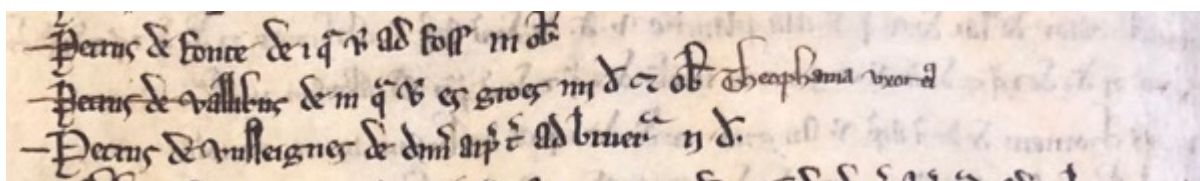 Petrus de fonte de i q̄ v̄ ad foss̄ iii ob̄
Petrus de vallibus de iii q̄ v̄ es groes iiii d̄ ⁊ ob̄ Theophania uxor
Petrus de vulleignes de dim̄ arp̄ t̄ ad bruerᵃ ii d̄.